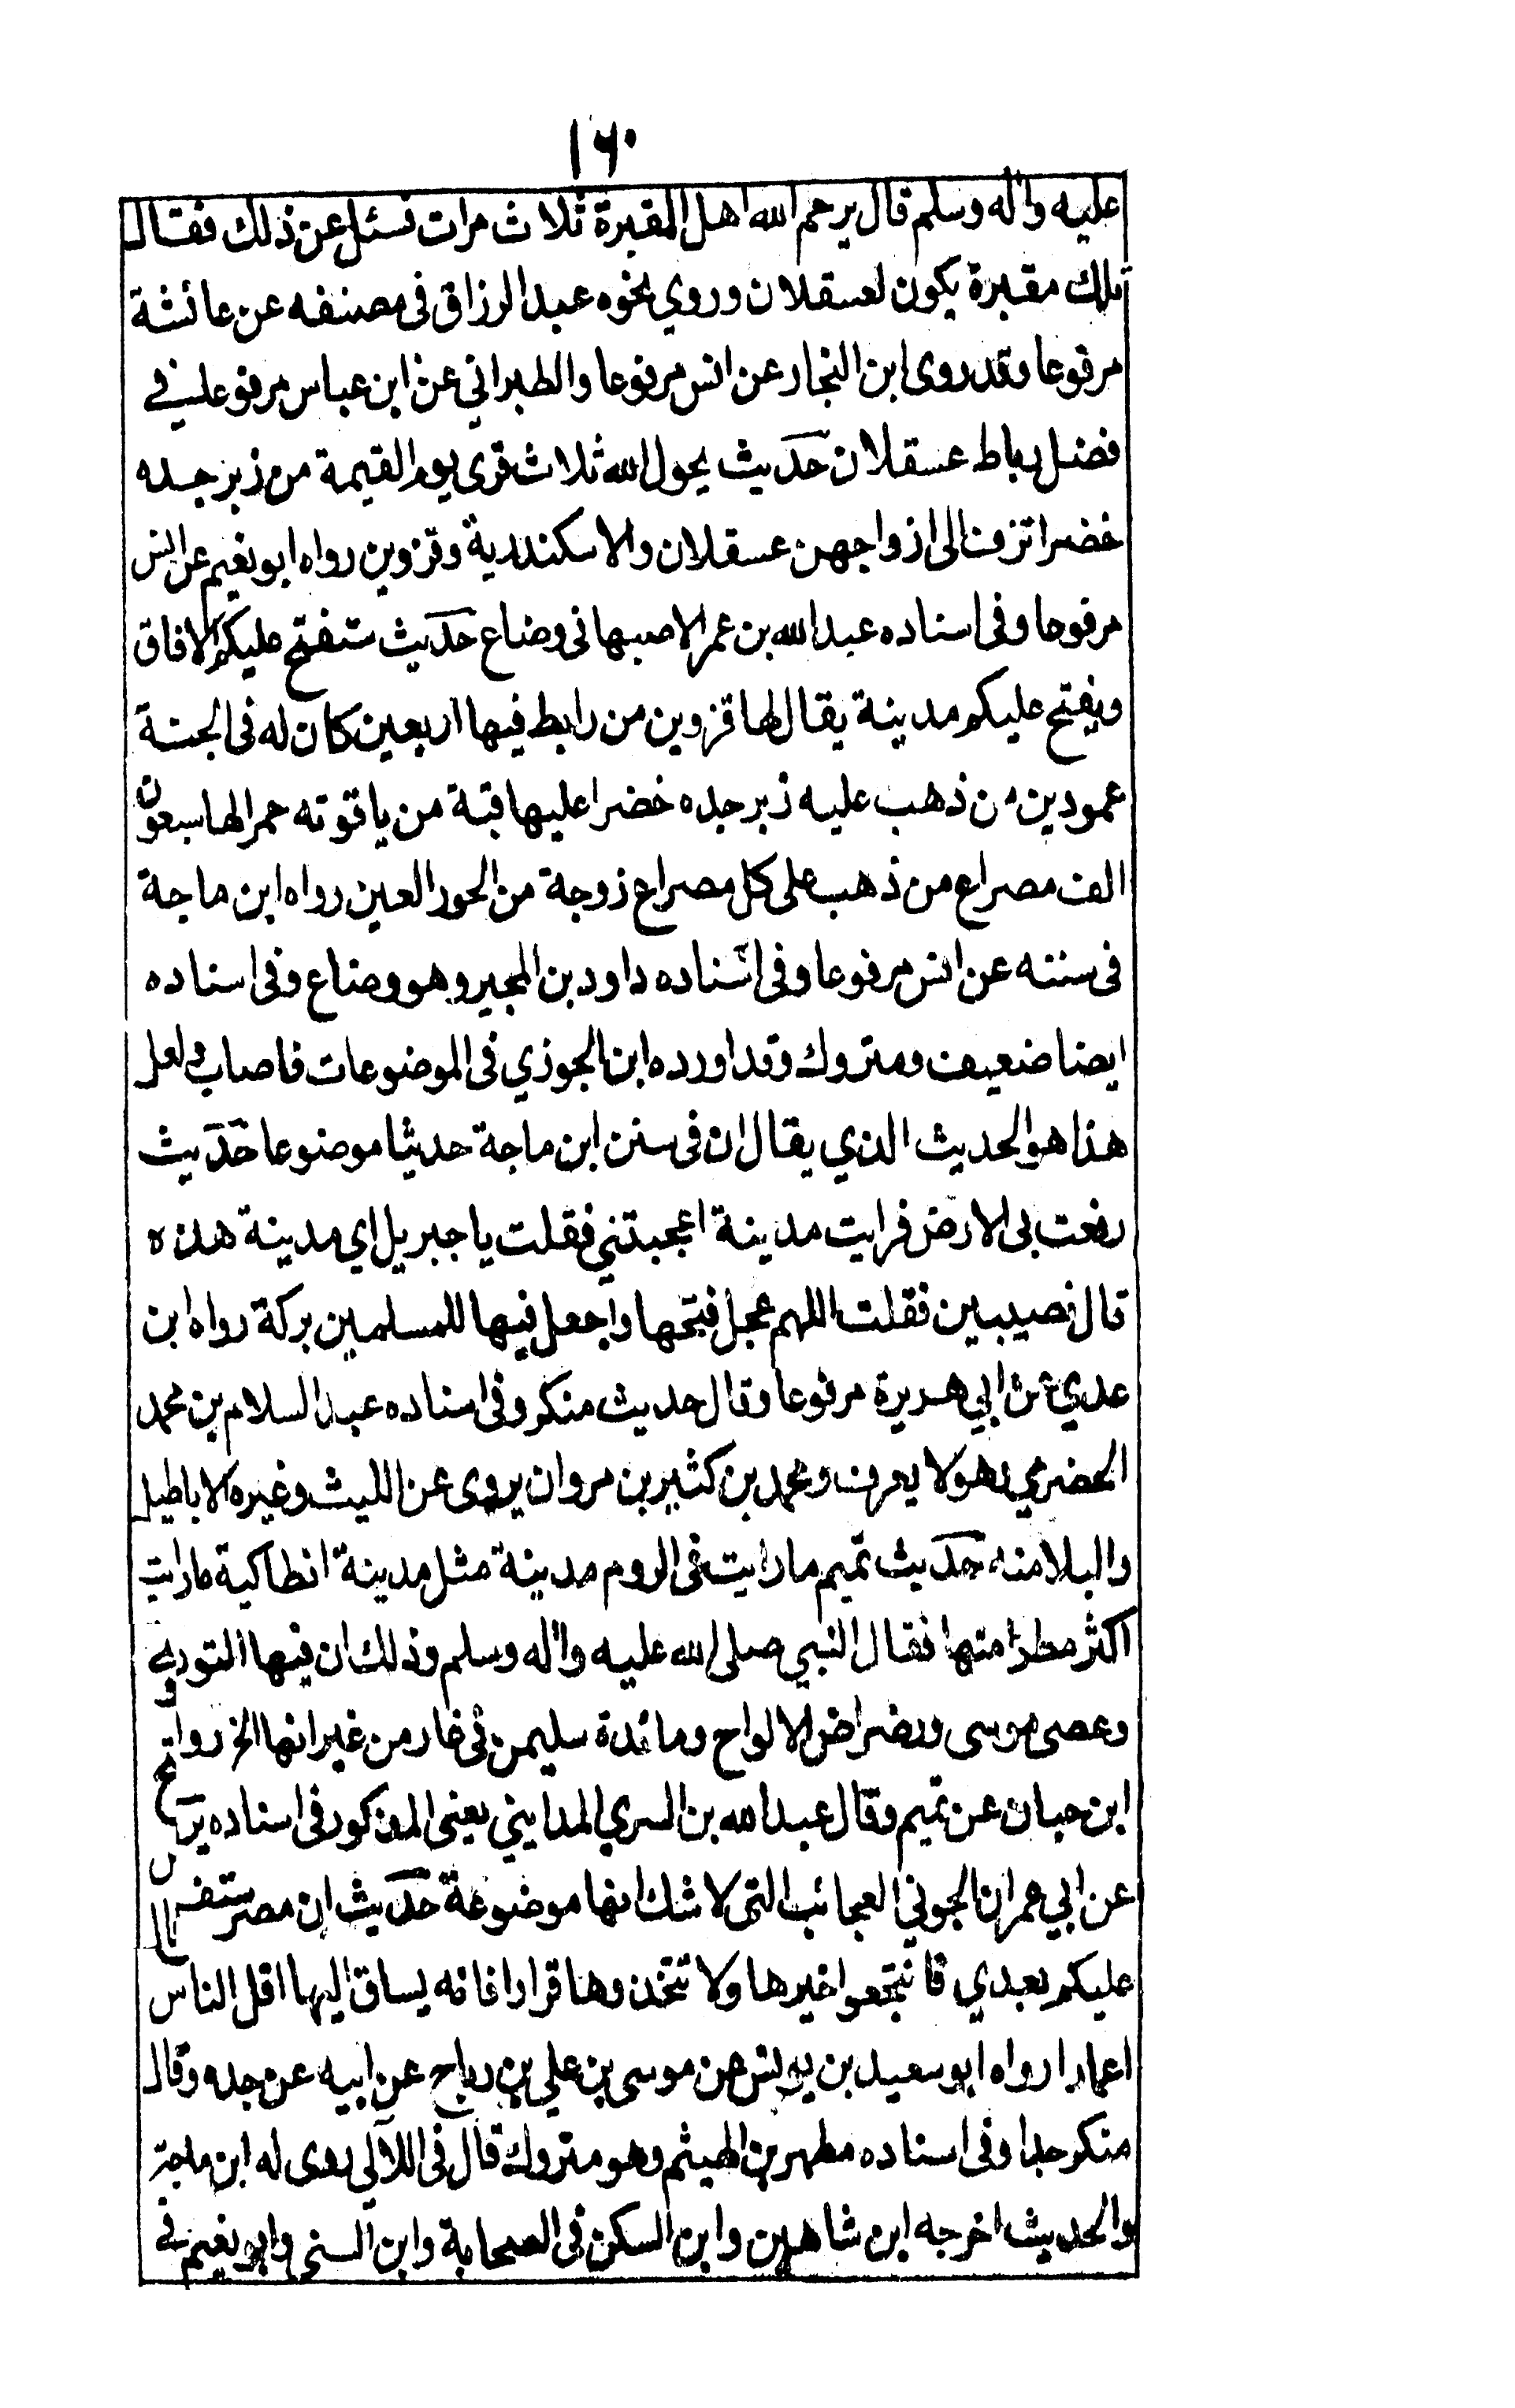 ١٦٠
عليه واله وسلم قال يرحم الله اهل المقبرة ثلاث مرات فسئل عن ذلك فقال
تلك مقبرة يكون لعسقلان وروي نحوه عبد الرزاق فى مصنفه عن عائشة
مرفوعا وقد روى ابن النجار عن انس مرفوعا والطبراني عن ابن عباس مرفوعا فے
فضل رباط عسقلان حديث يحول الله ثلاث قرى يوم القيمة من زبرجده
خضرا تزف الى ازواجهن عسقلان والاسكندرية وقزوين رواه ابو نعيم عن انس
مرفوعا وفى اسناده عبد الله بن عمر الاصبهانى وضاع حديث ستفتح عليكم الافاق
ويفتح عليكم مدينة يقال لها قزوين من رابط فيها اربعين كان له فى الجنة
عمودين من ذهب عليه زبرجده خضرا عليها قبة من ياقوته حمرا لها سبعون
الف مصراع من ذهب على كل مصراع زوجة من الحور العين رواه ابن ماجة
فى سننه عن انس مرفوعا وفى اسناده داود بن المحبر وهو وضاع وفى اسناده
ايضا ضعيف ومتروك وقد اورده ابن الجوزي فى الموضوعات فاصاب ولعل
هذا هو الحديث الذي يقال ان فى سنن ابن ماجة حديثا موضوعا حديث
رفعت بى الارض فرايت مدينة اعجبتني فقلت يا جبريل اي مدينة هذه
قال نصيبين فقلت اللهم عجل فتحها واجعل فيها للمسلمين بركة رواه ابن
عدي عن ابي هريرة مرفوعا وقال حديث منكر وفى اسناده عبد السلام بن محمد
الحضرمي وهو لا يعرف ومحمد بن كثير بن مروان يروى عن الليث وغيره الاباطيل
والبلا منه حديث تميم ما رايت فى الروم مدينة مثل مدينة انطاكية ما رايت
اكثر مطرا منها فقال النبي صلى الله عليه واله وسلم وذلك ان فيها التورية
وعصى موسى ورضراض الالواح ومائدة سليمن فى غار من غيرانها الخ رواه
ابن حبان عن تميم وقال عبد الله بن السري المدايني يعنى المذكور فى اسناده يروى
عن ابي عمران الجوني العجائب التى لا شك انها موضوعة حديث ان مصر ستفتح
عليكم بعدي فانتجعوا خيرها ولا تتخذوها قرارا فانه يساق اليها اقل الناس
اعمارا رواه ابو سعيد بن يونس عن موسى بن علي بن رباح عن ابيه عن جده وقال
منكر جدا وفى اسناده مطهر بن الهيثم وهو متروك قال فى اللالي روى له ابن ماجة
والحديث اخرجه ابن شاهين وابن السكن فى الصحابة وابن السني وابو نعيم فے